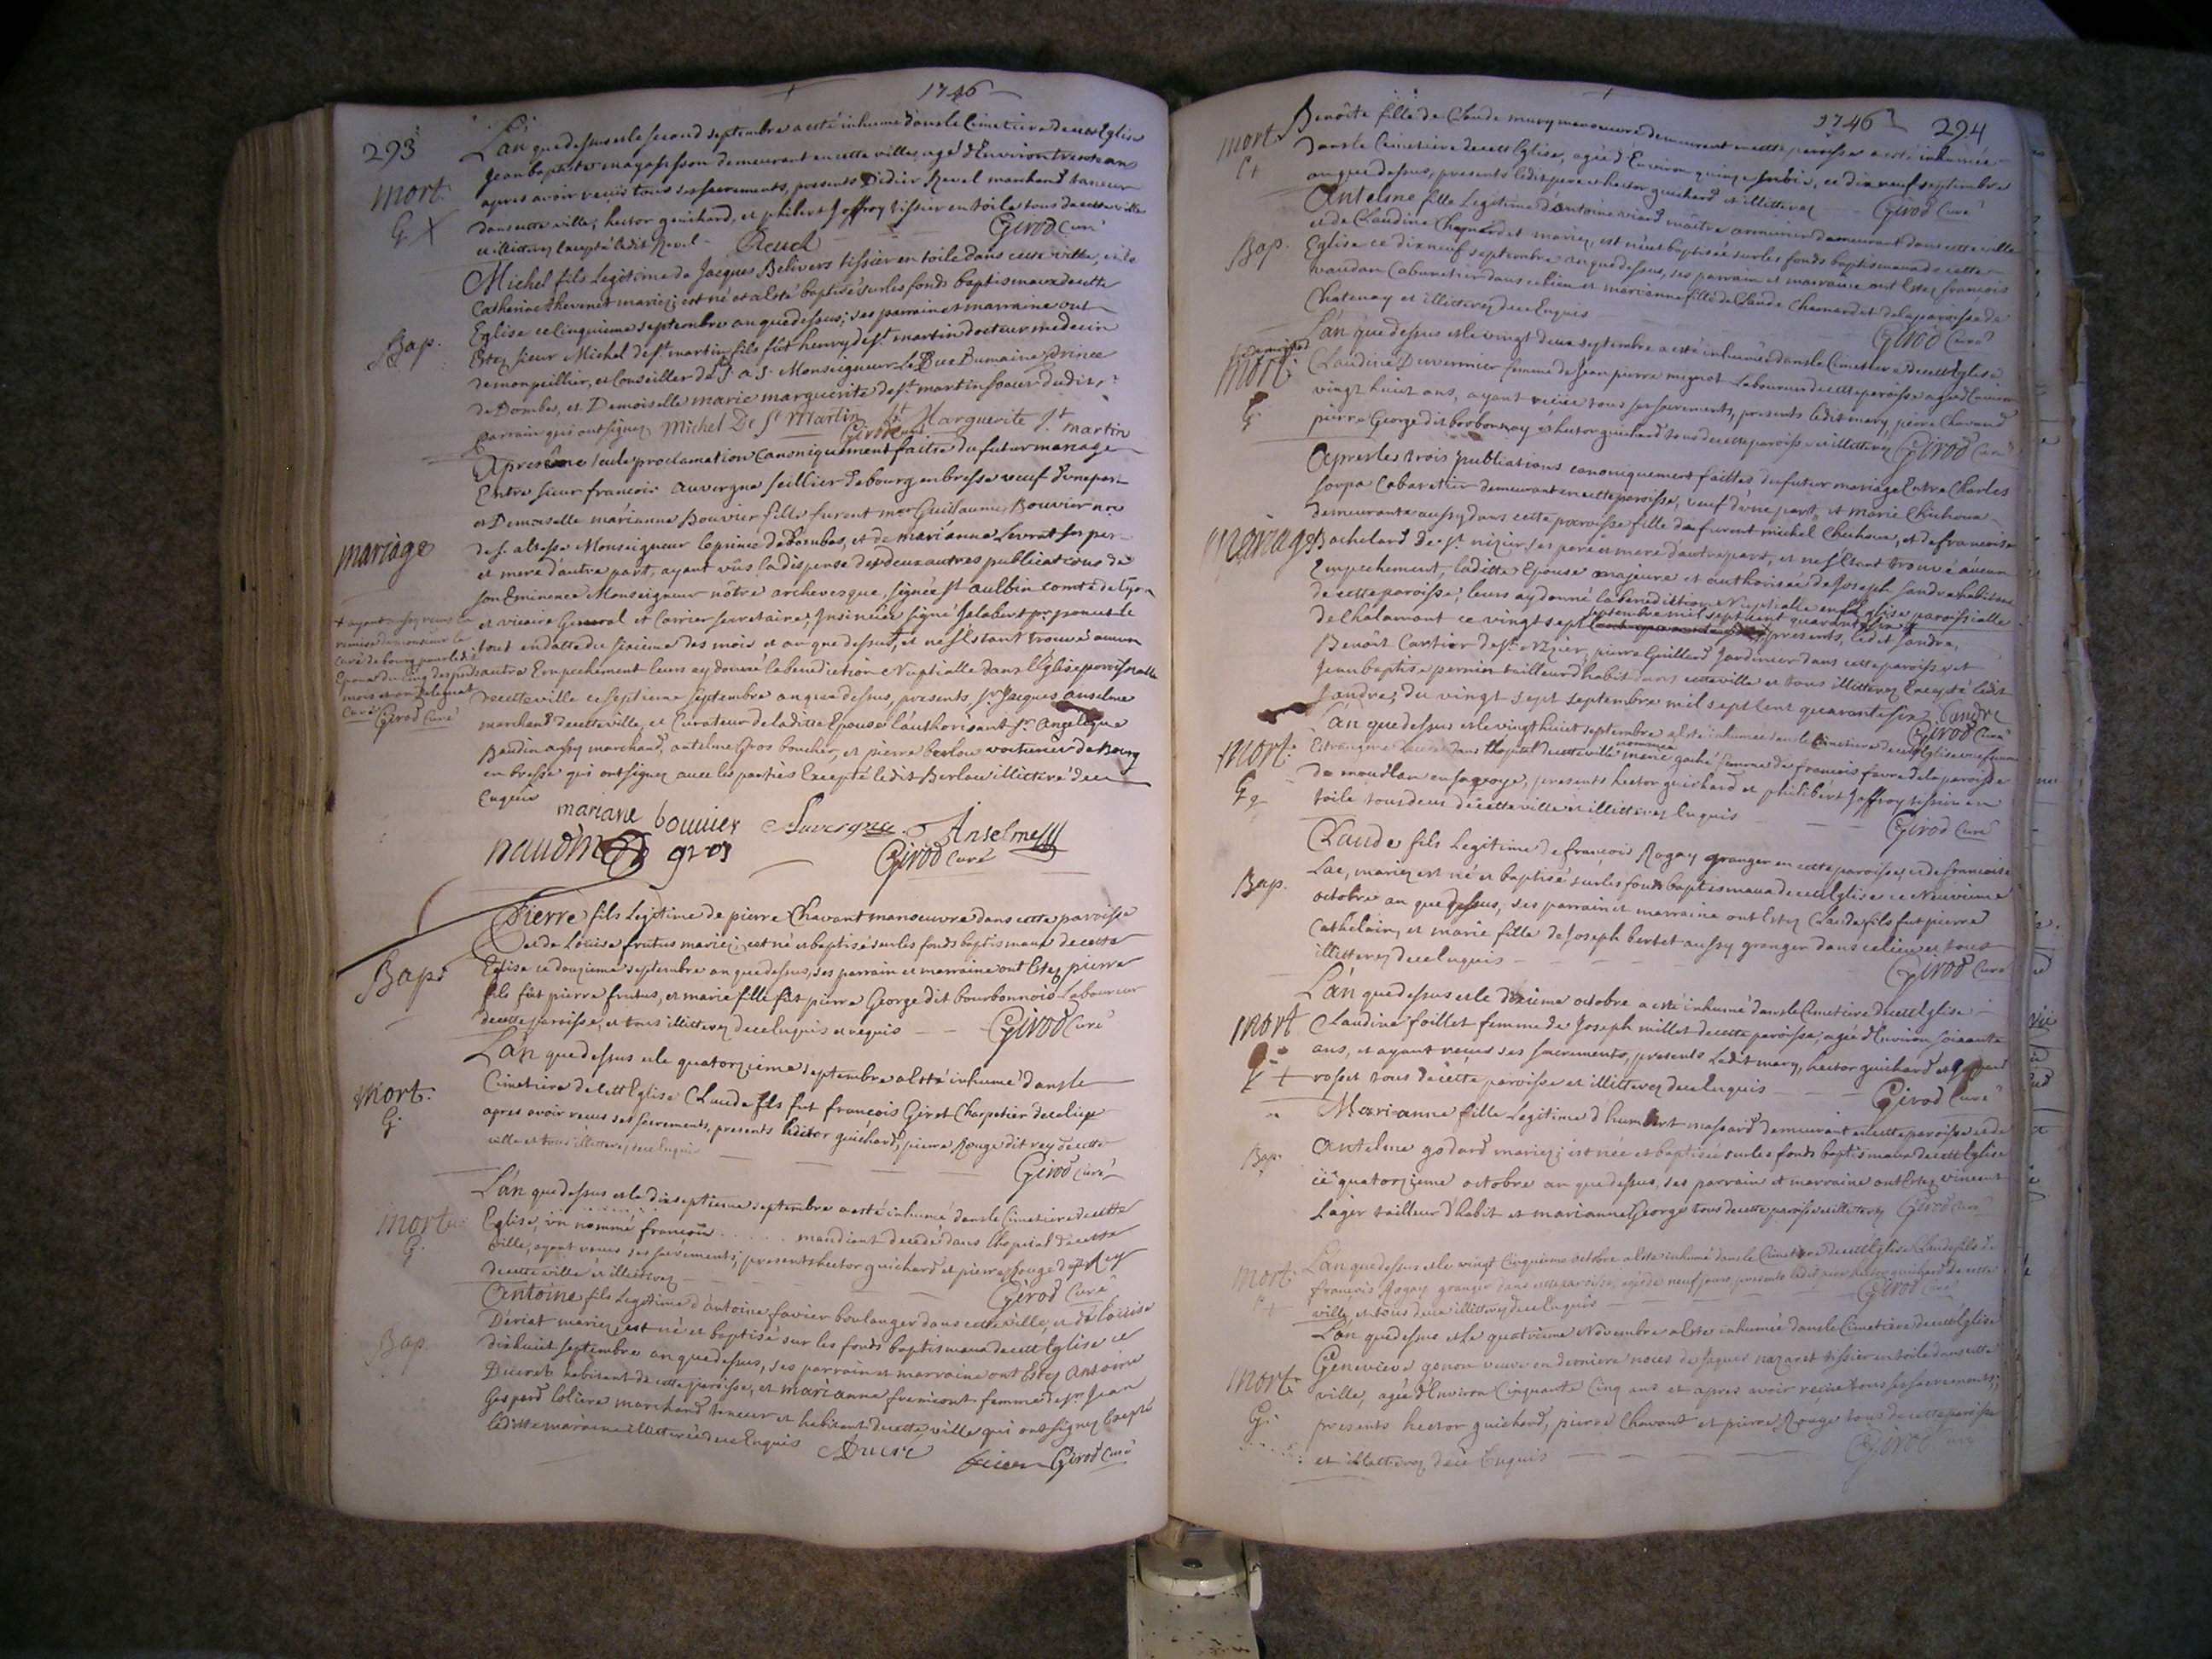 1746
293
L'an que dessus et le second septembre a esté inhumé dans le Cimetiere de cette Eglise
Jean baptiste demeurant en cette ville, agé d'Environ trente ans
mort
apres avoir reçus tous ses sacrements, presents Didier Revel marchand taneur
G. X
dans cette ville, hector guichard, et philibert Joffroy tissier en toile tous de cette ville
et illitterez Excepté ledit Revel - Revel Girod Curé
Michel fils Legitime de Jacques Belivers tissier en toile dans cette ville, et de
Catherine thevenet mariez; est né et a esté baptisé sur les fonds baptismaux de cette
Eglise ce Cinquieme septembre an que dessus; ses parrain et marraine ont
Bap.
Estez sieur Michel de st. martin fils fût henry de st. martin docteur medecin
de monpeillier, et Conseiller de S. a. S. Monseigneur Le Duc Dumaine Prince
de Dombes, et Demoiselle marie marguerite de st. martin soeur dudit
parrain qui ont signez Michel De St Martin Marguerite St. martin
Girod curé
Apres une seule proclamation Canoniquement faitte du futur mariage
Entre sieur francois auvergne seillier de bourg en bresse veuf d'une part
et Demoiselle marianne Bouvier fille furent mer Guillaume Bouvier
mariage
de s. altesse Monseigneur le prince de dombes, et de marianne Levrat ses pere
et mere d'autre part, ayant vûs la dispense des deux autres publications de
son Eminence Monseigneur nôtre archevesque, signée st aulbin comte de Lyon
et vicaire General et Carrier secretaire; Insinuée signé Jalabert
tout en datte du sixieme des mois et an que dessus, et ne s'Estant trouvé aucun
autre Empechement leurs ay donné la benediction Nuptialle dans l'Eglise paroissialle
+ ayant aussy reçus la
remise de monsieur le
Curé de bourg pour ledit
Epoux du Cinq des susdits
mois et an
curé Girod Curé
de cette ville ce septieme septembre an que dessus, presents, Sr. Jacques anselme
marchand de cette ville, et Curateur de la ditte Epouse l'authorisant Sr. angelique
Baudin aussy marchand, antelme Gros boucher, et pierre berlou voiturier de Bourg
en bresse qui ont signez avec les parties Excepté ledit Berlou illitteré de ce
Enquis
mariane bouuier Auvergne Anselme
naudin gros Girod Curé
Pierre fils Legitime de pierre Chavant manoeuvre dans cette paroisse
et de Loüise frutus mariez; est né et baptisé sur les fonds baptismaux de cette
Bap.
Eglise ce douzieme septembre an que dessus, ses parrain et marraine ont Estez pierre
fils fût pierre frutus, et marie fille fût pierre George dit bourbonnois Laboureur
de cette paroisse, et tous illitterez de ce Enquis et requis - Girod Curé
L'an que dessus et le quatorzieme septembre a esté inhumé dans le
mort.
Cimetiere de cette Eglise Claude fils fut françois Giret Charpetier de ce lieu
G.
apres avoir reçus ses sacrements, presents hector guichard, pierre Rouge dit rey de cette
ville et tous illitterez de ce Enquis
Girod Curé
L'an que dessus et le dixseptieme septembre a esté inhumé dans le Cimetiere de cette
mort
Eglise, un nommé françois . . . . . mandiant decedé dans l'hopital de cette
G.
ville, ayant reçus ses sacrements; presents hector guichard et pierre Rouge dit Rey
de cette ville et illitterez
Girod Curé
Antoine fils Legitime d'antoine favier boulanger dans cette ville, et de Loüise
Dériat mariez, est né et baptisé sur les fonds baptismaux de cette Eglise ce
Bap.
dixhuit septembre an que dessus, ses parrain et marraine ont Estez Antoine
Ducret habitant de cette paroisse, et marianne fremiont femme de sr. Jean
Gaspard Colliere marchand taneur et habitant de cette ville qui ont signez Excepté
laditte maraine illitterée de ce Enquis Ducret favier Girod Curé
1746
294
Benoîte fille de Claude mury manoeuvre demeurant en cette paroisse a esté inhumée
mort
dans le Cimetiere de cette Eglise, agée d'Environ quinze mois, ce dix neuf septembre
an que dessus, presents ledit pere et hector guichard et illitterez Girod Curé
Antelme fille Legitime d'antoine viard maître armurier demeurant dans cette ville
et de Claudine Chanardet mariez, est née et baptisée sur les fonds baptismaux de cette
Bap.
Eglise ce dixneuf septembre an que dessus, ses parrain et marraine ont Estez francois
vaudan Cabaretier dans ce lieu et marianne fille de Claude Chanardet de la paroisse de
Chatenay et illitterez de ce Enquis
Girod Curé
L'an que dessus et le vingt deux septembre a esté inhumée dans le Cimetiere de cette Eglise
mort.
Claudine Duvernier femme de Jean pierre mignot Laboureur de cette paroisse agée d'Environ
vingt huit ans, ayant reçüe tous ses sacrements, presents ledit mary, pierre Chavand
G.
pierre George dit borbonnoy et hector guichard tous de cette paroisse et illitterez Girod Curé
Apres les trois publications canoniquement faittes du futur mariage Entre Charles
sorpa Cabaretier demeurant en cette paroisse, veuf d'une part, et marie Chichoux
demeurante aussy dans cette paroisse fille de furent michel Chichoux, et de francoise
Mariage
Bachelard de st. nizier, ses pere et mere d'autre part, et ne s'Estant trouvé aucun
Empechement, laditte Epouse majeure et authorisée de Joseph Jandre habitant
de cette paroisse; leurs ay donné la benediction Nuptialle en l'Eglise paroissialle
de Chalamont ce vingt sept septembre mil sept cent quarante six presents, ledit Jandre,
Benoît Cartier de st. nizier, pierre Guillard Jardinier dans cette paroisse, et
Jean baptiste pernin tailleur d'habit dans cette ville et tous illitterez Excepté ledit
Jandre; du vingt sept septembre mil sept cent quarante six Candre
Girod Curé
L'an que dessus et le vingt huict septembre a esté inhumée dans le Cimetiere de cette Eglise une femme
mort.
Etrangere decedée dans l'hopital de cette ville nommée marie gaché femme de francois favre de la paroisse
G
de en savoye, presents hector guichard et philibert Joffroy tissier en
toile tous deux de cette ville et illitterez Enquis
Girod Curé
Claude fils Legitime de françois Rogay granger en cette paroisse, et de francoise
Lac, mariez est né et baptisé sur les fonds baptismaux de cette Eglise ce Neuvieme
Bap.
octobre an que dessus, ses parrain et marraine ont Estez Claude fils fut pierre
Cathelain, et marie fille de Joseph bertet aussy granger dans ce lieu et tous
illitterez de ce Enquis
Girod Curé
L'an que dessus et le dixieme octobre a esté inhumé dans le Cimetiere de cette Eglise
mort
Claudine foillet femme de Joseph millet de cette paroisse, agée d'Environ soixante
ans, et ayant reçus ses sacrements, presents ledit mary, hector guichard et
rosset tous de cette paroisse et illitterez de ce Enquis Girod Curé
Marianne fille Legitime d'humbert massard demeurant en cette paroisse et de
Bap.
antelme godard mariez; est née et baptisée sur les fonds baptismaux de cette Eglise
ce quatorzieme octobre an que dessus, ses parrain et marraine ont Estez vincent
Lager tailleur d'habit et marianne George tous de cette paroisse et illitterez Girod Curé
L'an que dessus et le vingt Cinquieme octobre a esté inhumé dans le Cimetiere de cette Eglise Claude fils de
mort.
francois Rogay granger dans cette paroisse, agé de neuf jours, presents ledit pere hector guichard de cette
ville, et tous deux illitterez de ce Enquis Girod Curé
L'an que dessus et Le quatrieme Novembre a esté inhumée dans le Cimetiere de cette Eglise
Genevieve genon veuve en derniere noces de Jaques nazaret tissier en toile dans cette
mort
ville, agée d'Environ Cinquante Cinq ans et apres avoir reçüe tous ses sacrements;
G.
presents hector guichard, pierre Chavant et pierre Rouge tous de cette paroisse
et illitterez de ce Enquis Girod Curé